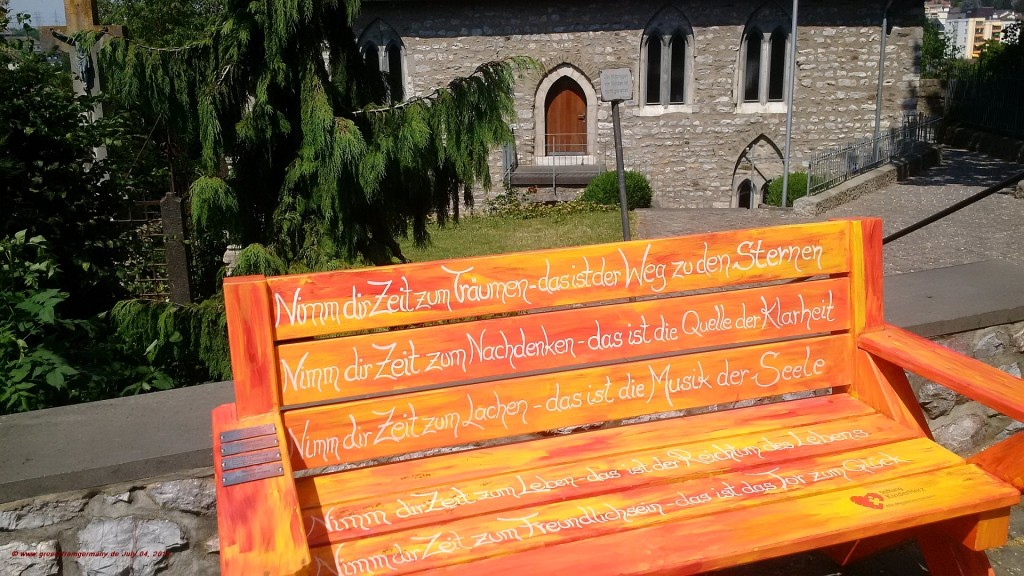 Nimm dir Zeit zum Träumen - das ist der Weg zu den Sternen
Nimm dir Zeit zum Nachdenken - das ist die Quelle der Klarheit
Nimm dir Zeit zum Lachen - das ist die Musik der Seele
Nimm dir Zeit zum Leben - das ist der Reichtum des Lebens
Nimm dir Zeit zum Freundlichsein - das ist das Tor zum Glück